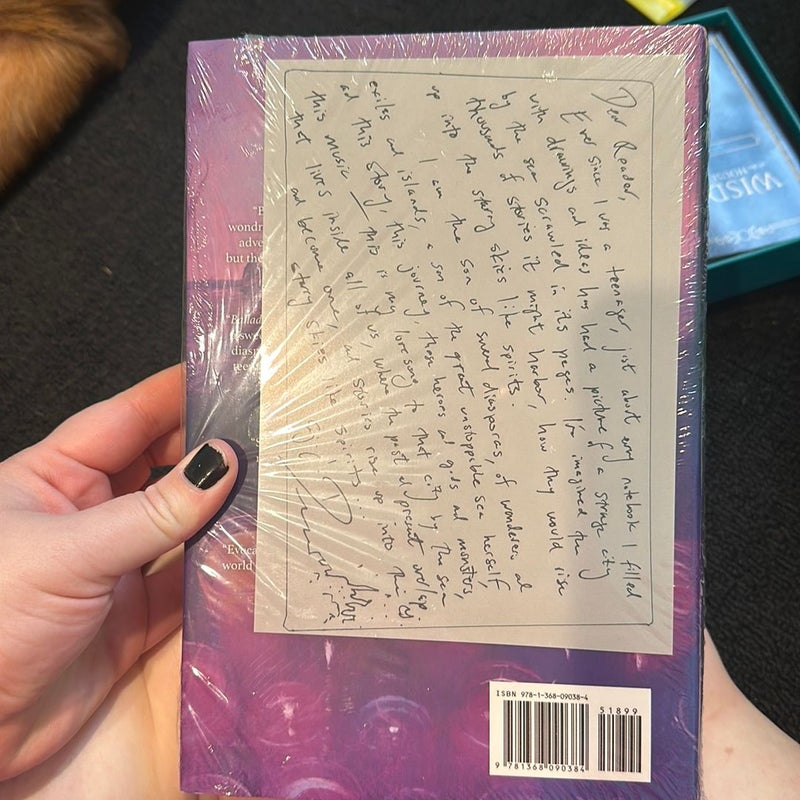 Dear Reader,
Ever since I was a teenager, just about every notebook I filled
with drawings and ideas has had a picture of a strange city
by the sea scrawled in its pages. I've imagined the
thousands of stories it might harbor, how they would rise
up into the starry skies like spirits.
I am the son of several diasporas, of wanderers and
exiles and islands, a son of the great unstoppable sea herself
and this story, this journey, these heroes and gods and monsters,
this music — this is my lovesong to that city by the sea
that lives inside all of us, where the past and present overlap
and become one, and stories rise up into the
starry skies like spirits...
"B
wondr
adve
but the
"Ballad
diasp
"Evoca
world
ISBN 978-1-368-09038-4
51899
9 781368 090384
WISD
HOUS